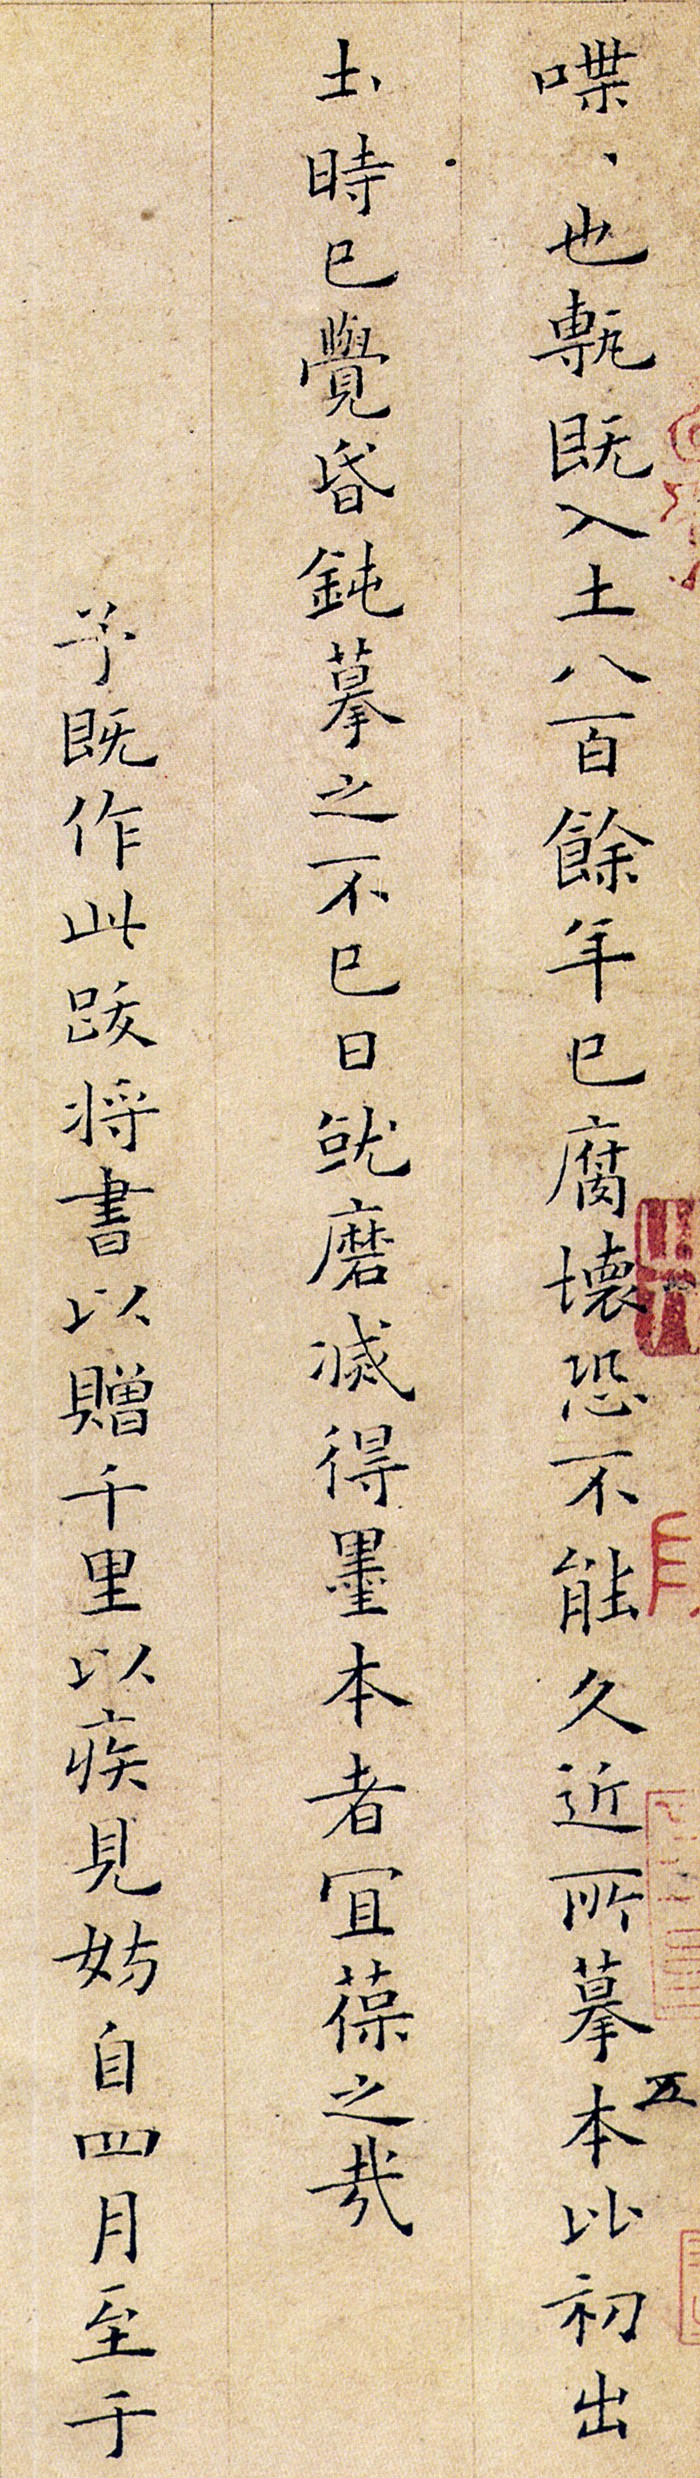 喋、也甎既入土八百餘年已腐壞恐不能久近所摹本比初出
土時已覺昏鈍摹之不已日就磨滅得墨本者宜葆之哉
予既作此跋将書以贈千里以疾見妨自四月至于
五